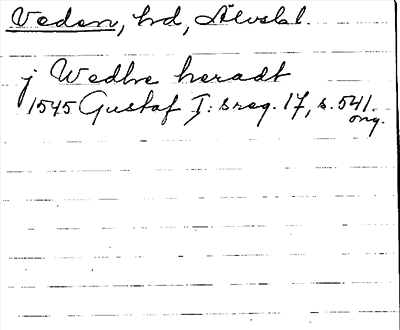 Veden, hd, Älvsbl.
j Wedhe heradt
1545 Gustaf I: s reg. 17, s. 541.
orig.